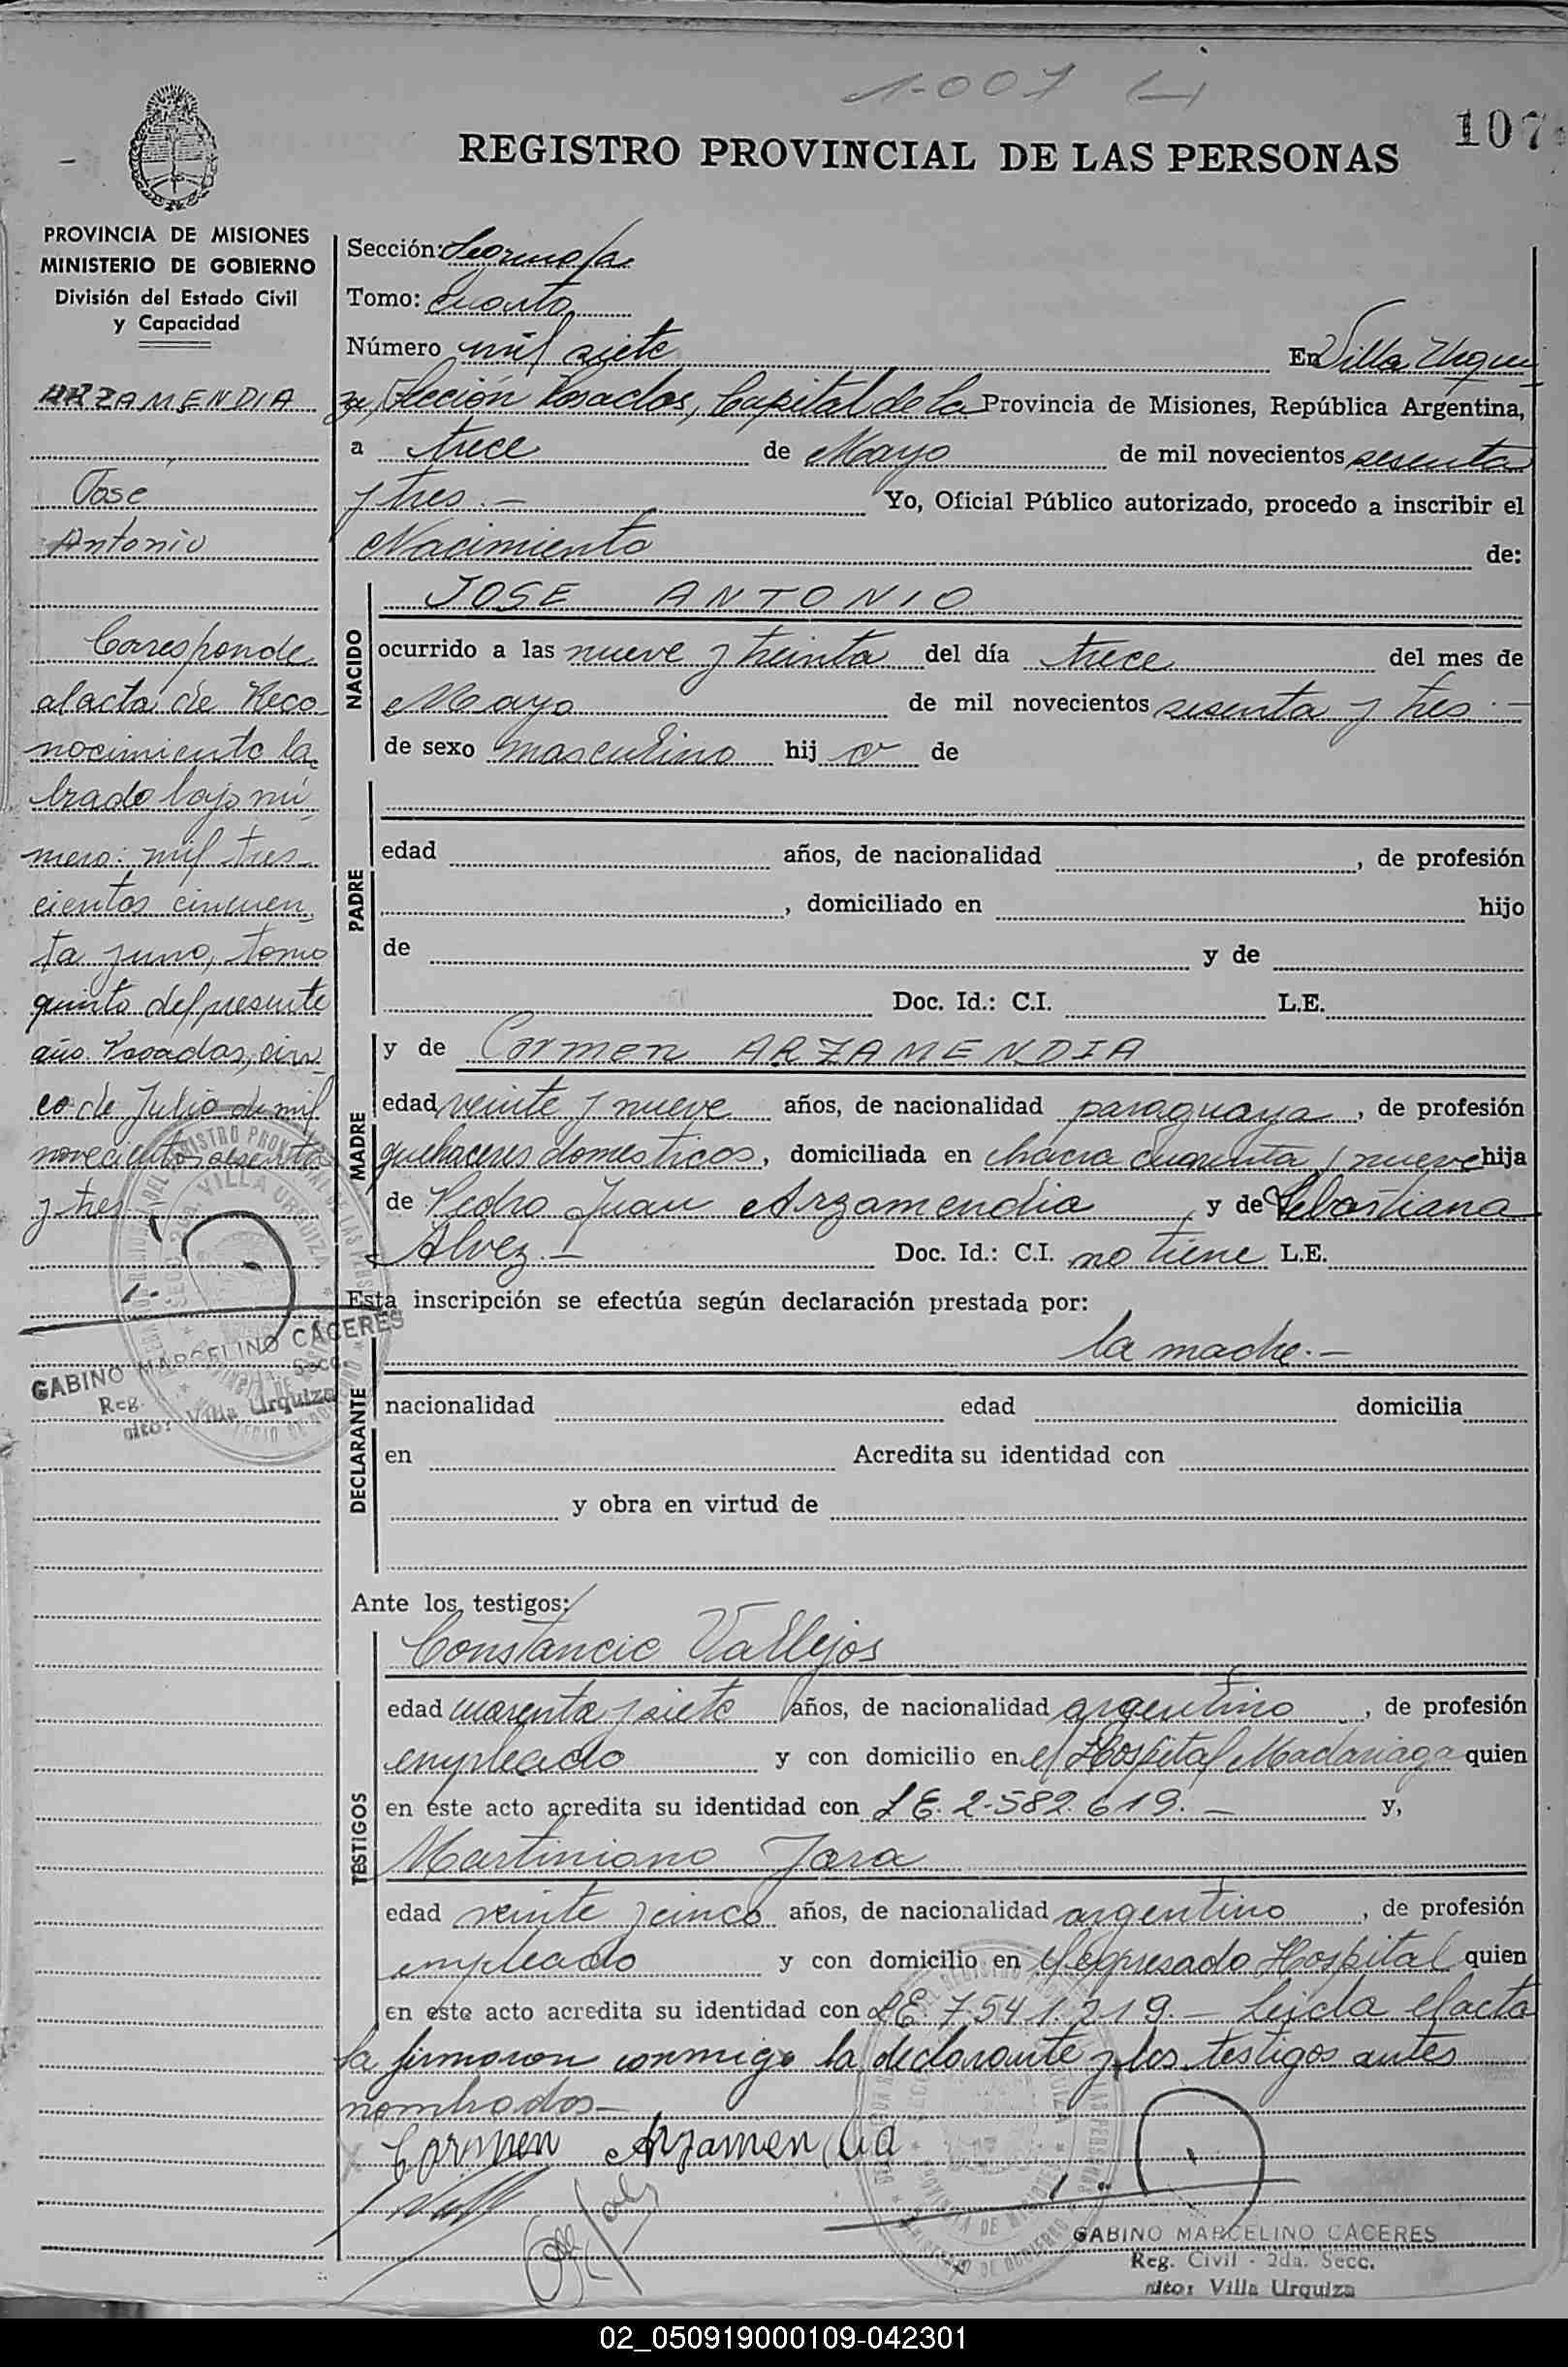 1-007
107
REGISTRO PROVINCIAL DE LAS PERSONAS
PROVINCIA DE MISIONES
MINISTERIO DE GOBIERNO
División del Estado Civil
y Capacidad
ARZAMENDIA
José
Antonio
Corresponde
al acta de Reco
nocimiento la
brado bajo nú
mero: mil tres
cientos cincuen
ta y uno, tomo
quinto del presente
año. Posadas, cin
co de Julio de mil
novecientos sesenta
y tres
GABINO MARCELINO CACERES
Reg. Secc.
Villa Urquiza
Sección:
Tomo: Cuarto
Número mil siete En Villa Urqui
za, Sección Posadas, Capital de la Provincia de Misiones, República Argentina,
a trece de Mayo de mil novecientos sesenta
y tres.- Yo, Oficial Público autorizado, procedo a inscribir el
Nacimiento de:
NACIDO
JOSE ANTONIO
ocurrido a las nueve y treinta del día trece del mes de
Mayo de mil novecientos sesenta y tres.-
de sexo masculino hij o de
PADRE
edad años, de nacionalidad , de profesión
, domiciliado en hijo
de y de
Doc. Id.: C.I. L.E.
MADRE
y de Carmen ARZAMENDIA
edad veinte y nueve años, de nacionalidad paraguaya, de profesión
quehaceres domesticos, domiciliada en chacra cuarenta y nueve hija
de Pedro Juan Arzamendia y de Sebastiana
Alvez.- Doc. Id.: C.I. no tiene L.E.
Esta inscripción se efectúa según declaración prestada por:
la madre.-
DECLARANTE
nacionalidad edad domicilia
en Acredita su identidad con
y obra en virtud de
Ante los testigos:
TESTIGOS
Constancio Vallejos
edad cuarenta y siete años, de nacionalidad argentino, de profesión
empleado y con domicilio en el Hospital Madariaga quien
en este acto acredita su identidad con L.E. 2.582.619.- y,
Martiniano Jara
edad veinte y cinco años, de nacionalidad argentino, de profesión
empleado y con domicilio en el expresado Hospital quien
en este acto acredita su identidad con L.E. 7.541.219.- Leida el acta
la firmaron conmigo la declarante y los testigos antes
nombrados-
Carmen Arzamendia
GABINO MARCELINO CACERES
Reg. Civil - 2da. Secc.
Villa Urquiza
02_050919000109-042301